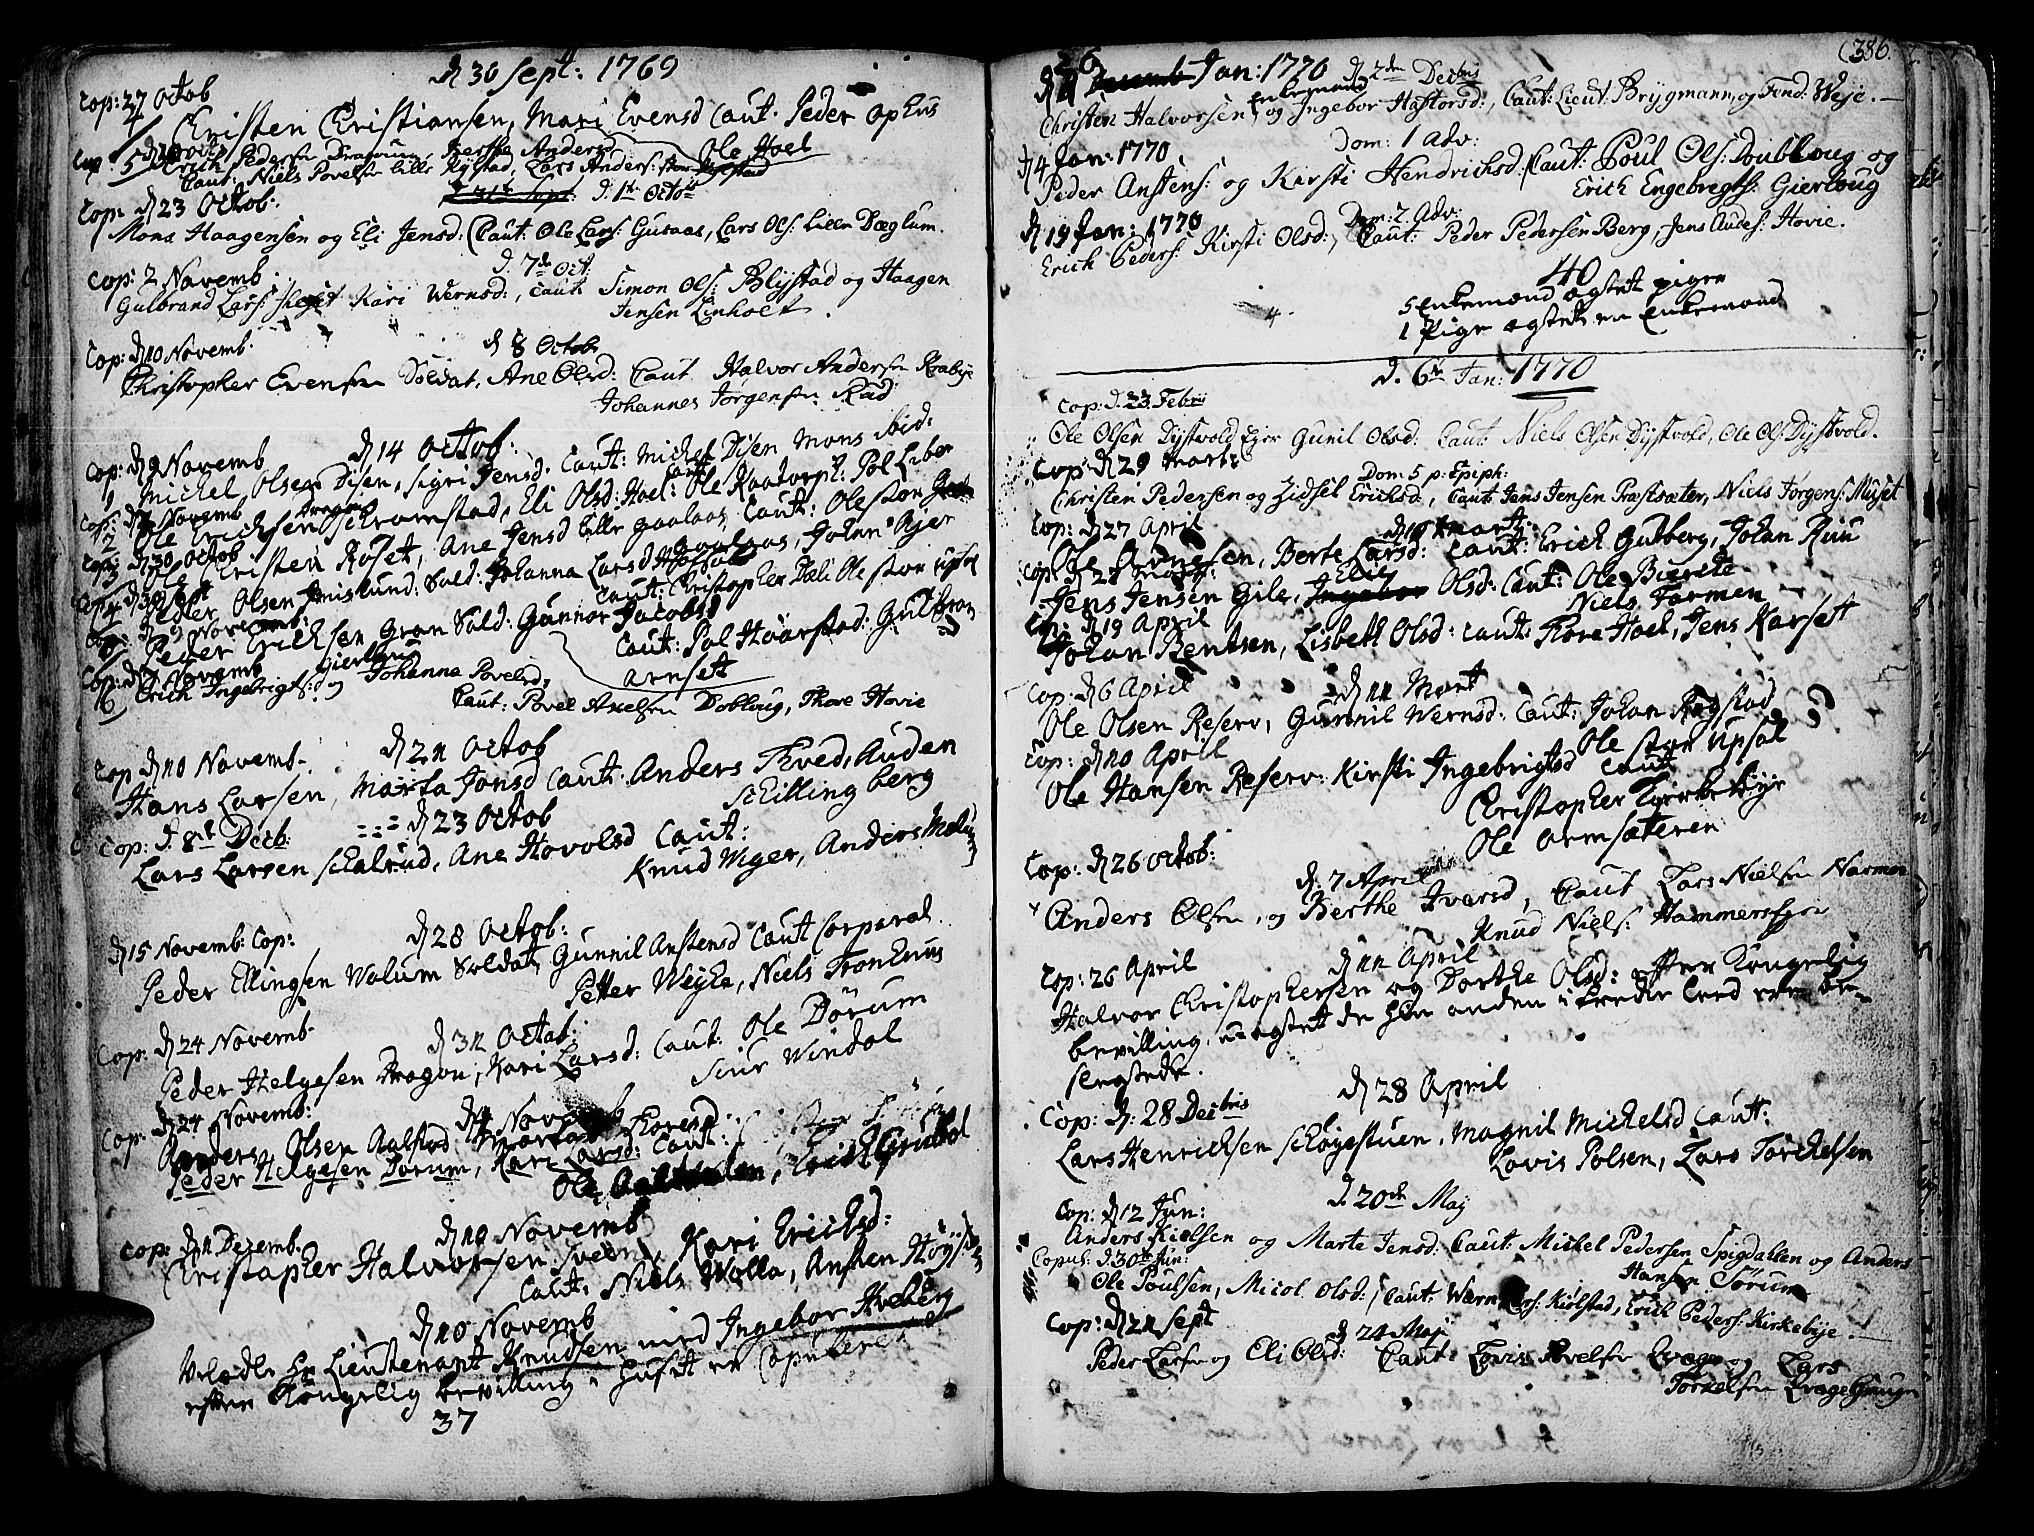 d 30 Sept: 1769
Cop: 27 Octob
Christen Christiansen, Mari Evensd Caut. Peder Ophus
Ole Hoel
Erich Pedersen Dragoun, Berthe Andersd
Caut. Niels Povelsen lille Kystad, Lars Anders: stor
Cop. d 23 Octob: d. 1te Octo
Mons Haagensen og Eli Jensd: Caut: Ole Lars: Gusaas, Lars Ols: Lille Dæglum.
Cop: 2 Novemb d. 7de Oct:
Gulbrand Lars: Kari Wernsd:, Caut Simon Ols: Blystad og Haagen
Jensen Linholt.
Cop: d 10 Novemb. d 8 Octob
Christopher Evensen Soldat, Ane Olsd: Caut Halvor Andersen Kraabye
Johannes Jörgensen Rud
Cop: d 9 Novemb d 14 Octob:
1 Michel Olsen Disen, Sigri Jensd. Caut: Michel Disen Mons ibid:
Cop: d Novemb
2 Ole Erichsen Schramstad, Eli Olsd: Hoel: Caut Ole Kaatorpt: Pol Libor
Cop: d 30 Octob
3 Ole Cristen Roset, Ane Jensd lille gaalaas, Caut: Ole stor
4 Peder Olsen Sold: Johanna Larsd
Caut: Christopher Dæli Ole stor upsal
Cop: d 9 Novemb:
5 Peder Erichsen Gran Sold: Gunnor Jacobsd
Caut: Pol Haarstad: Gulbran
Arnset
Cop: d Novemb
6 Erich Ingebrigts: Gierlaug og Johanna Povelsd,
Caut: Povel Axelsen Dobloug, Thore Hovie
Cop d 10 Novemb. d 21 Octob
Hans Larsen, Marta Jonsd Caut. Anders Tved, Auden
Schilling berg
Cop: d. 8t Decb: d 23 Octob
Lars Larsen Schalrud, Ane Hovolsd Caut:
Knud Wiger, Anders Melum
d 15 Novemb: Cop: d 28 Octob:
Peder Ellingsen Walum Soldat, Gunnil Anstensd Caut Corporal
Petter Weyle, Niels Tronhuus
Cop: d 24 Novemb d 31 Octob:
Peder Helgesen Dragon, Kari Larsd: Caut: Ole Dörum
Siur Windol
Cop: d 24 Novemb: d Novemb
Anders Olsen Aalstad Marta Thorensd
Peder Helgesen Dorum, Kari Larsd: Caut:
Ole
Cop: d 11 Dezemb. d 10 Novemb
Christopher Halvorsen Sveen, Kari Erichsd:
Caut: Niels Wolla, Ansten
d 10 Novemb
Velædle Hr Lieutenant Knudsen med Ingebor Hveberg
efter Kongelig bevilling i Huset er Copuleret
37
386.
d Jan: 1770 d 2den Decbris
Christen Halvorsen Enkemand og Ingebor Hastorsd:, Caut: Lieut: Brygmann, og Fend: Weje.
Dom: 1 Adv:
d 4 Jan: 1770
Peder Anstens: og Kirsti Hendrichsd: Caut: Poul Ols: Doubloug og
Erich Engebregts: Gierloug
d 19 Jan: 1770 Dom: 2 Adv:
Erich Peders: Kirsti Olsd:, Caut: Peder Pedersen Berg, Jens Audes: Hovie.
40
5 Enkemænd ægtet piger
4.
1 Pige ægtet en Enkemand
d. 6te Jan: 1770
Cop: d. 23 Febrii
Ole Olsen Dystvold Ejer Gunil Olsd: Caut Niels Olsen Dystvold, Ole Ols Dystvold.
Cop: d 29 Marti
Dom: 5 p: Epiph:
Christen Pedersen og Zidsel Erichsd:, Caut Jens Jensen Præstsæter, Niels Jörgens: Muset
Cop: d 27 April d 10 Mart:
Ole Arnesen, Berte Larsd: Caut: Erich Gutberg, Johan Ruu
Cop: d 28 Mart:
Jens Jensen Gile, Eli Olsd: Caut: Ole Bierche
Niels Farmen
Cop: d 19 April
Johan Bentsen, Lisbeth Olsd: Caut: Thore Hoel, Jens Karset
Cop: d 6 April d 11 Mart
Ole Olsen Reserv, Gunnil Wernsd: Caut: Johan Røgstad
Ole stor upsal
Cop: d 10 April
Ole Hansen Reserv: Kirsti Ingebrigtsd Caut
Christopher Kirkebye
Ole Armsæteren
Cop: d 26 Octob:
d. 7 April
Anders Olsen, og Berthe Ivarsd, Caut Lars Nielsen Narmo
Knud Niels: Hammerstgen
Cop: 26 April d 11 April
Halvor Christophersen og Dorthe Olsd: efter Kongelig
bevilling, uagtet de hin anden i tredie Leed ere be-
slegtede.
d 28 April
Cop: d: 28 Decbris
Lars Henrichsen Schøyestuen, Magnil Michelsd Caut:
Lovis Polsen, Lars Torchelsen
d. 20de Maj
Cop: d 12 Jun:
Anders Kielsen og Marte Jensd: Caut: Michel Pedersen Spigdallen og Anders
Hansen Sørum
Copul: d. 30te Jun:
Ole Poulsen, Micol Olsd:, Caut: Wern Lars: Kiølstad, Erich Peders: Kirkebye.
Cop: d 21 Sept d 24 Maj
Peder Larsen og Eli Olsd: Caut: Lovis Povelsen Qvage og Lars
Torkelsen Qvagehaugn